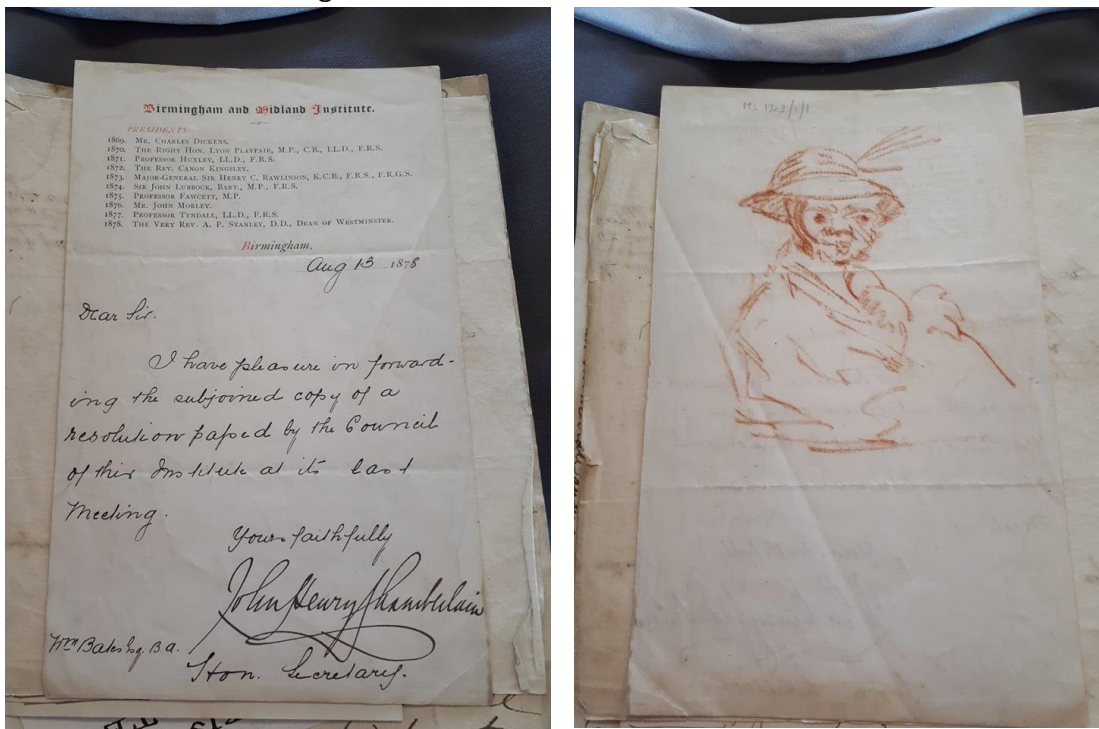 Birmingham and Midland Institute.
PRESIDENTS:
1869. MR. CHARLES DICKENS.
1870. THE RIGHT HON. LYON PLAYFAIR, M.P., C.B., LL.D., F.R.S.
1871. PROFESSOR HUXLEY, LL.D., F.R.S.
1872. THE REV. CANON KINGSLEY.
1873. MAJOR-GENERAL SIR HENRY C. RAWLINSON, K.C.B., F.R.S., F.R.G.S.
1874. SIR JOHN LUBBOCK, BART., M.P., F.R.S.
1875. PROFESSOR FAWCETT, M.P.
1876. MR. JOHN MORLEY.
1877. PROFESSOR TYNDALL, LL.D., F.R.S.
1878. THE VERY REV. A. P. STANLEY, D.D., DEAN OF WESTMINSTER.
Birmingham,
Aug 13 1878
Dear Sir.
I have pleasure in forward-
ing the subjoined copy of a
resolution passed by the Council
of this Institute at its last
Meeting.
Yours faithfully
John Henry Chamberlain
Wm Bates Esq. B.A.
Hon. Secretary.
MS 1243/1/1